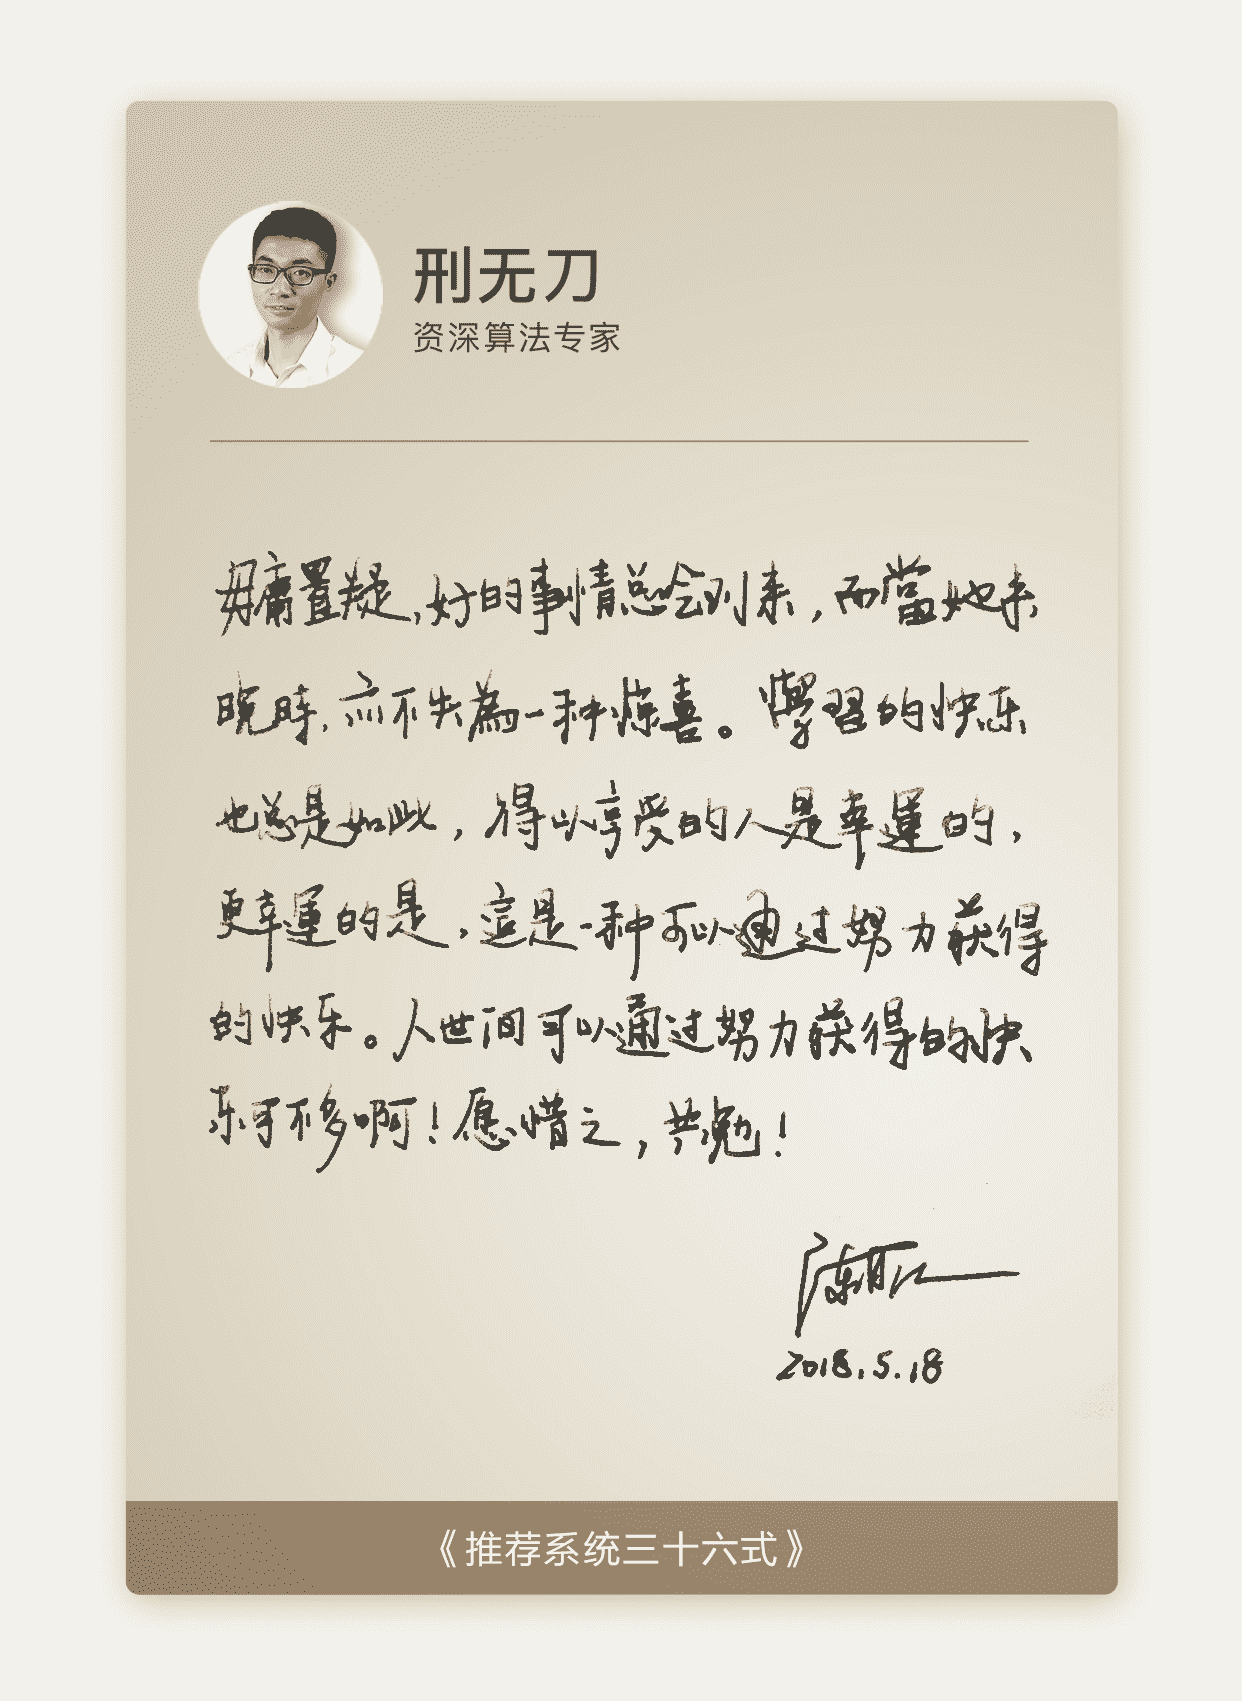 刑无刀
资深算法专家
毋庸置疑，好的事情总会到来，而當她来
晚時，亦不失為一种惊喜。學習的快乐
也总是如此，得以享受的人是幸運的，
更幸運的是，這是一种可以通过努力获得
的快乐。人世间可以通过努力获得的快
乐可不多啊！愿惜之，共勉！
2018.5.18
《推荐系统三十六式》